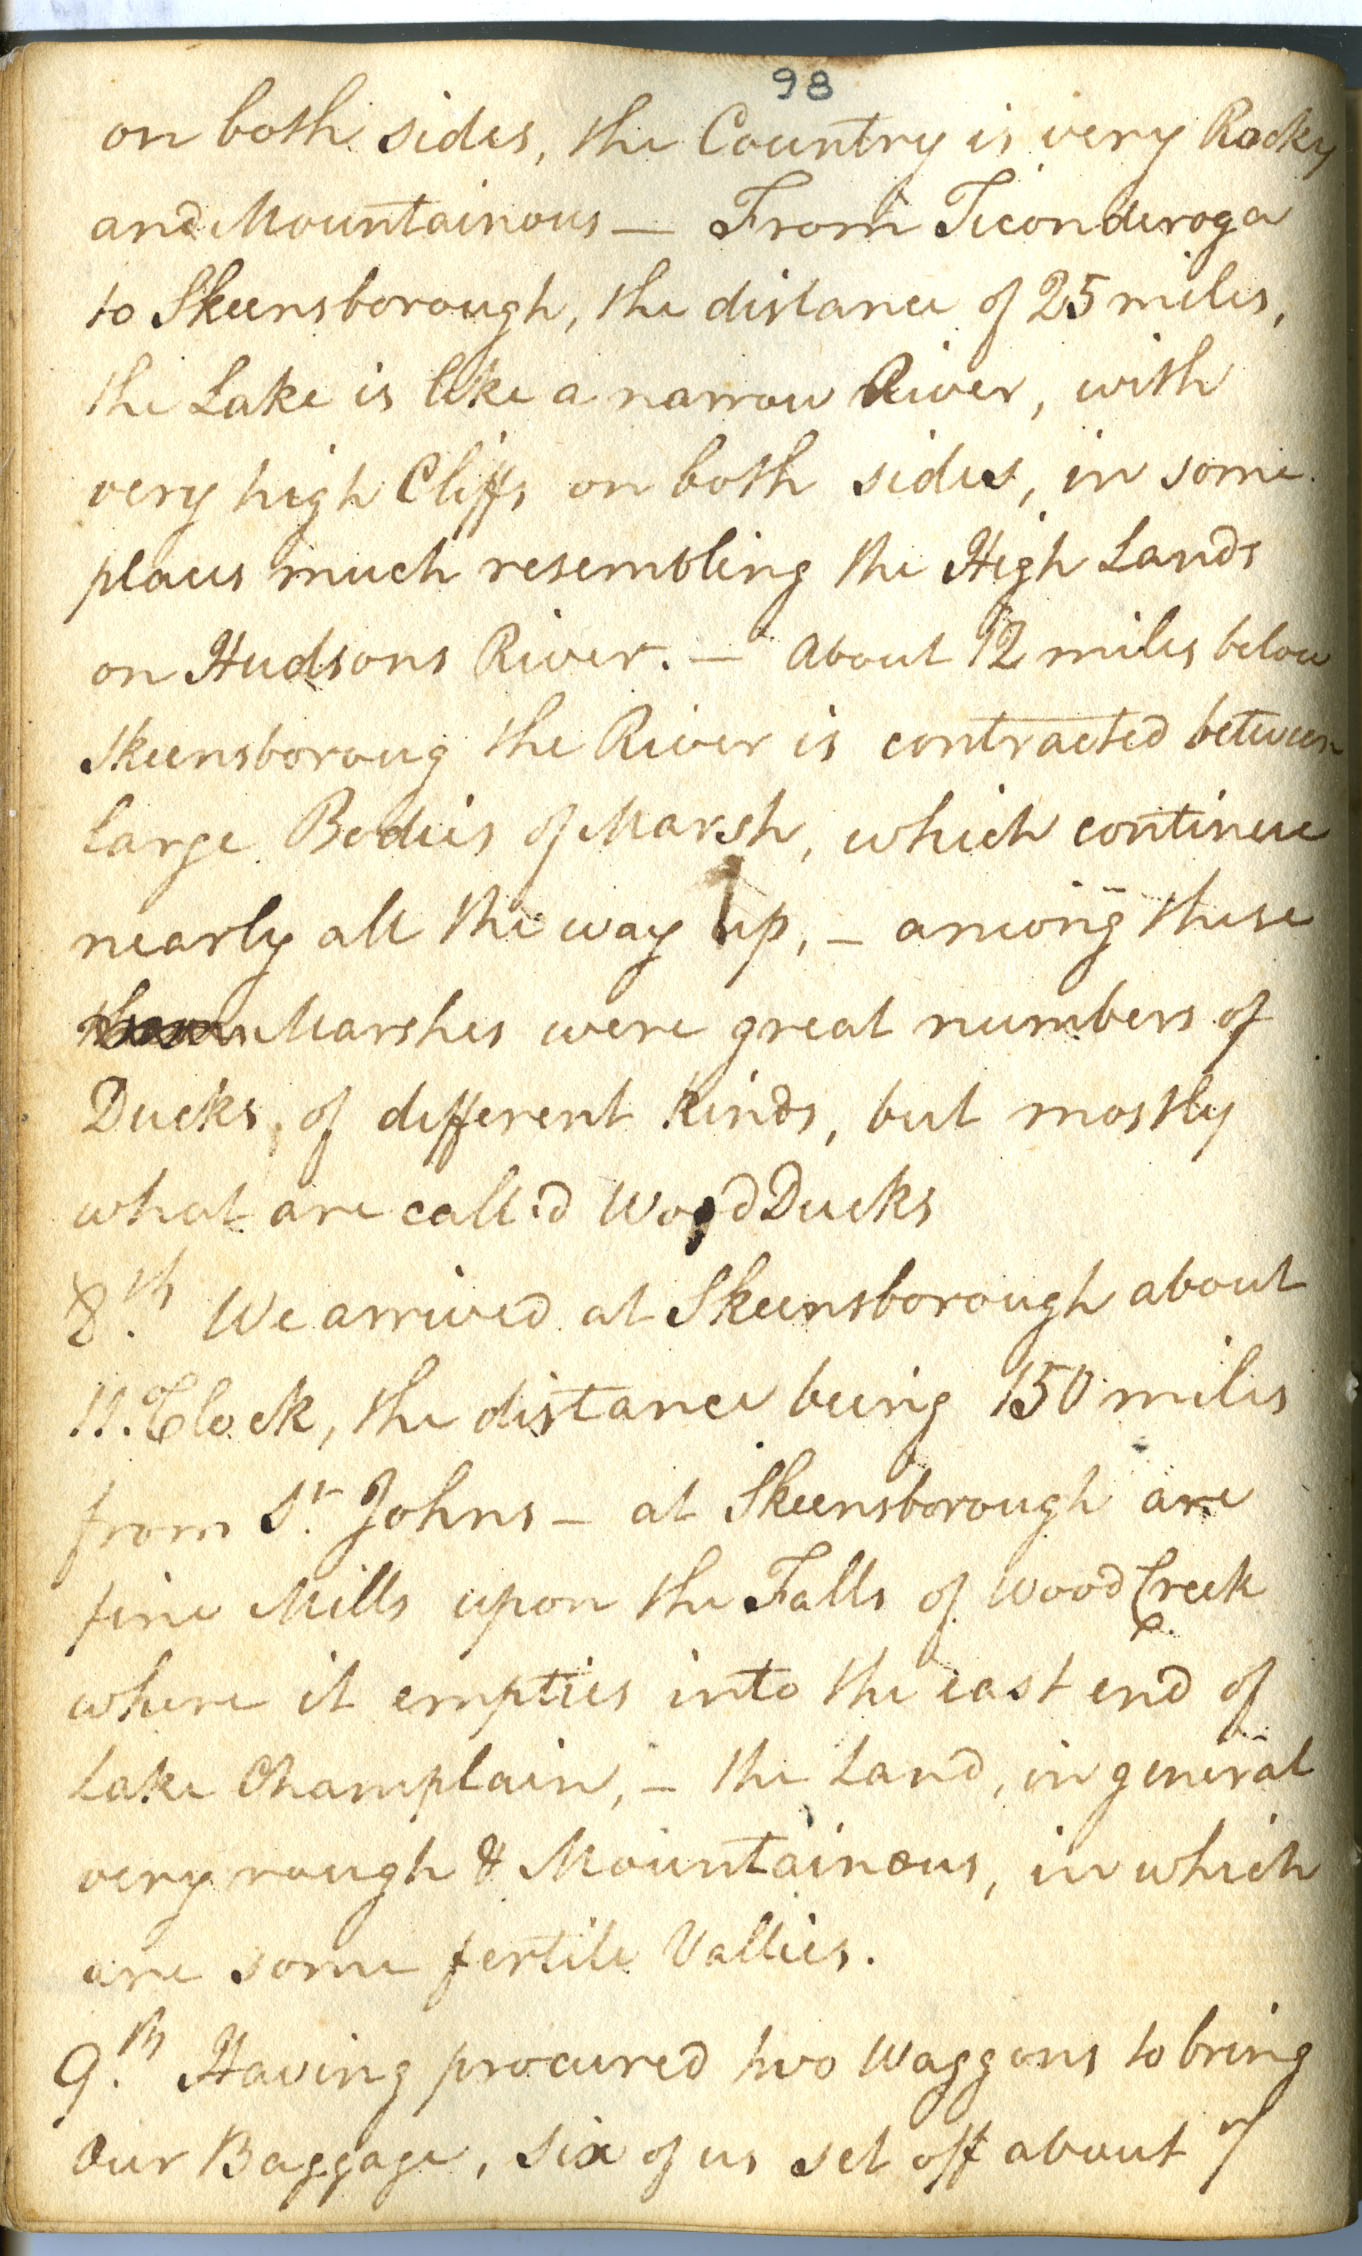 98
on both sides, the Country is very Rocky
and Mountainous — From Ticonderoga
to Skeensborough, the distance of 25 miles,
the Lake is like a narrow River, with
very high Cliffs on both sides, in some
places much resembling the High Lands
on Hudsons River. — About 12 miles below
Skeensboroug the River is contracted between
large Bodies of Marsh, which continue
nearly all the way up, — among these
Marshes were great numbers of
Ducks, of different kinds, but mostly
what are call:d Wood Ducks
8.th We arrived at Skeensborough about
11. Clock, the distance being 150 miles
from St. Johns — at Skeensborough are
fine Mills upon the Falls of Wood Creek
where it empties into the east end of
Lake Champlain, — the Land, in general
very rough & Mountainous, in which
are some fertile Vallies.
9.th Having procured two Waggons to bring
Our Baggage, six of us set off about 7